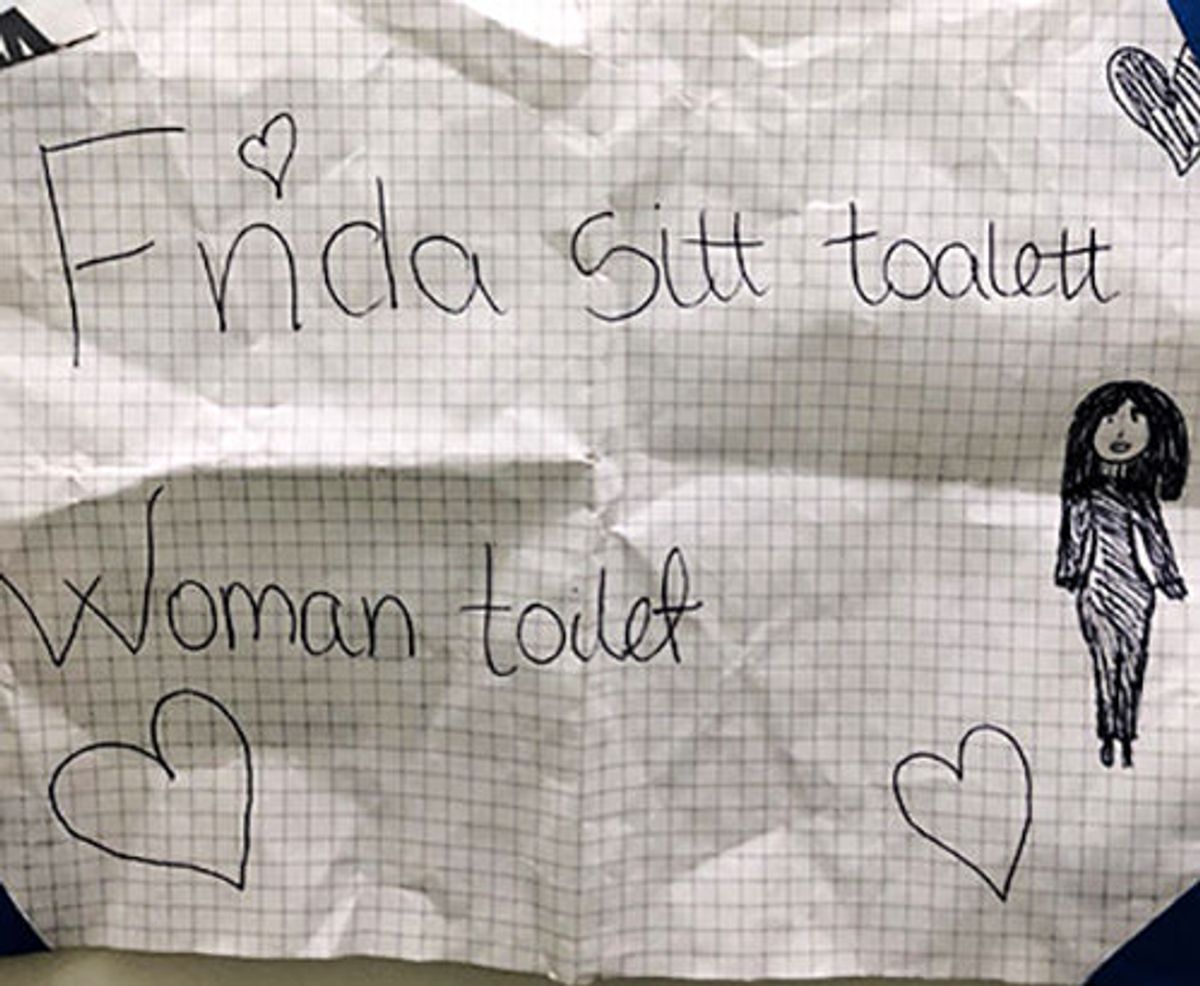 Frida sitt toalett
Woman toilet